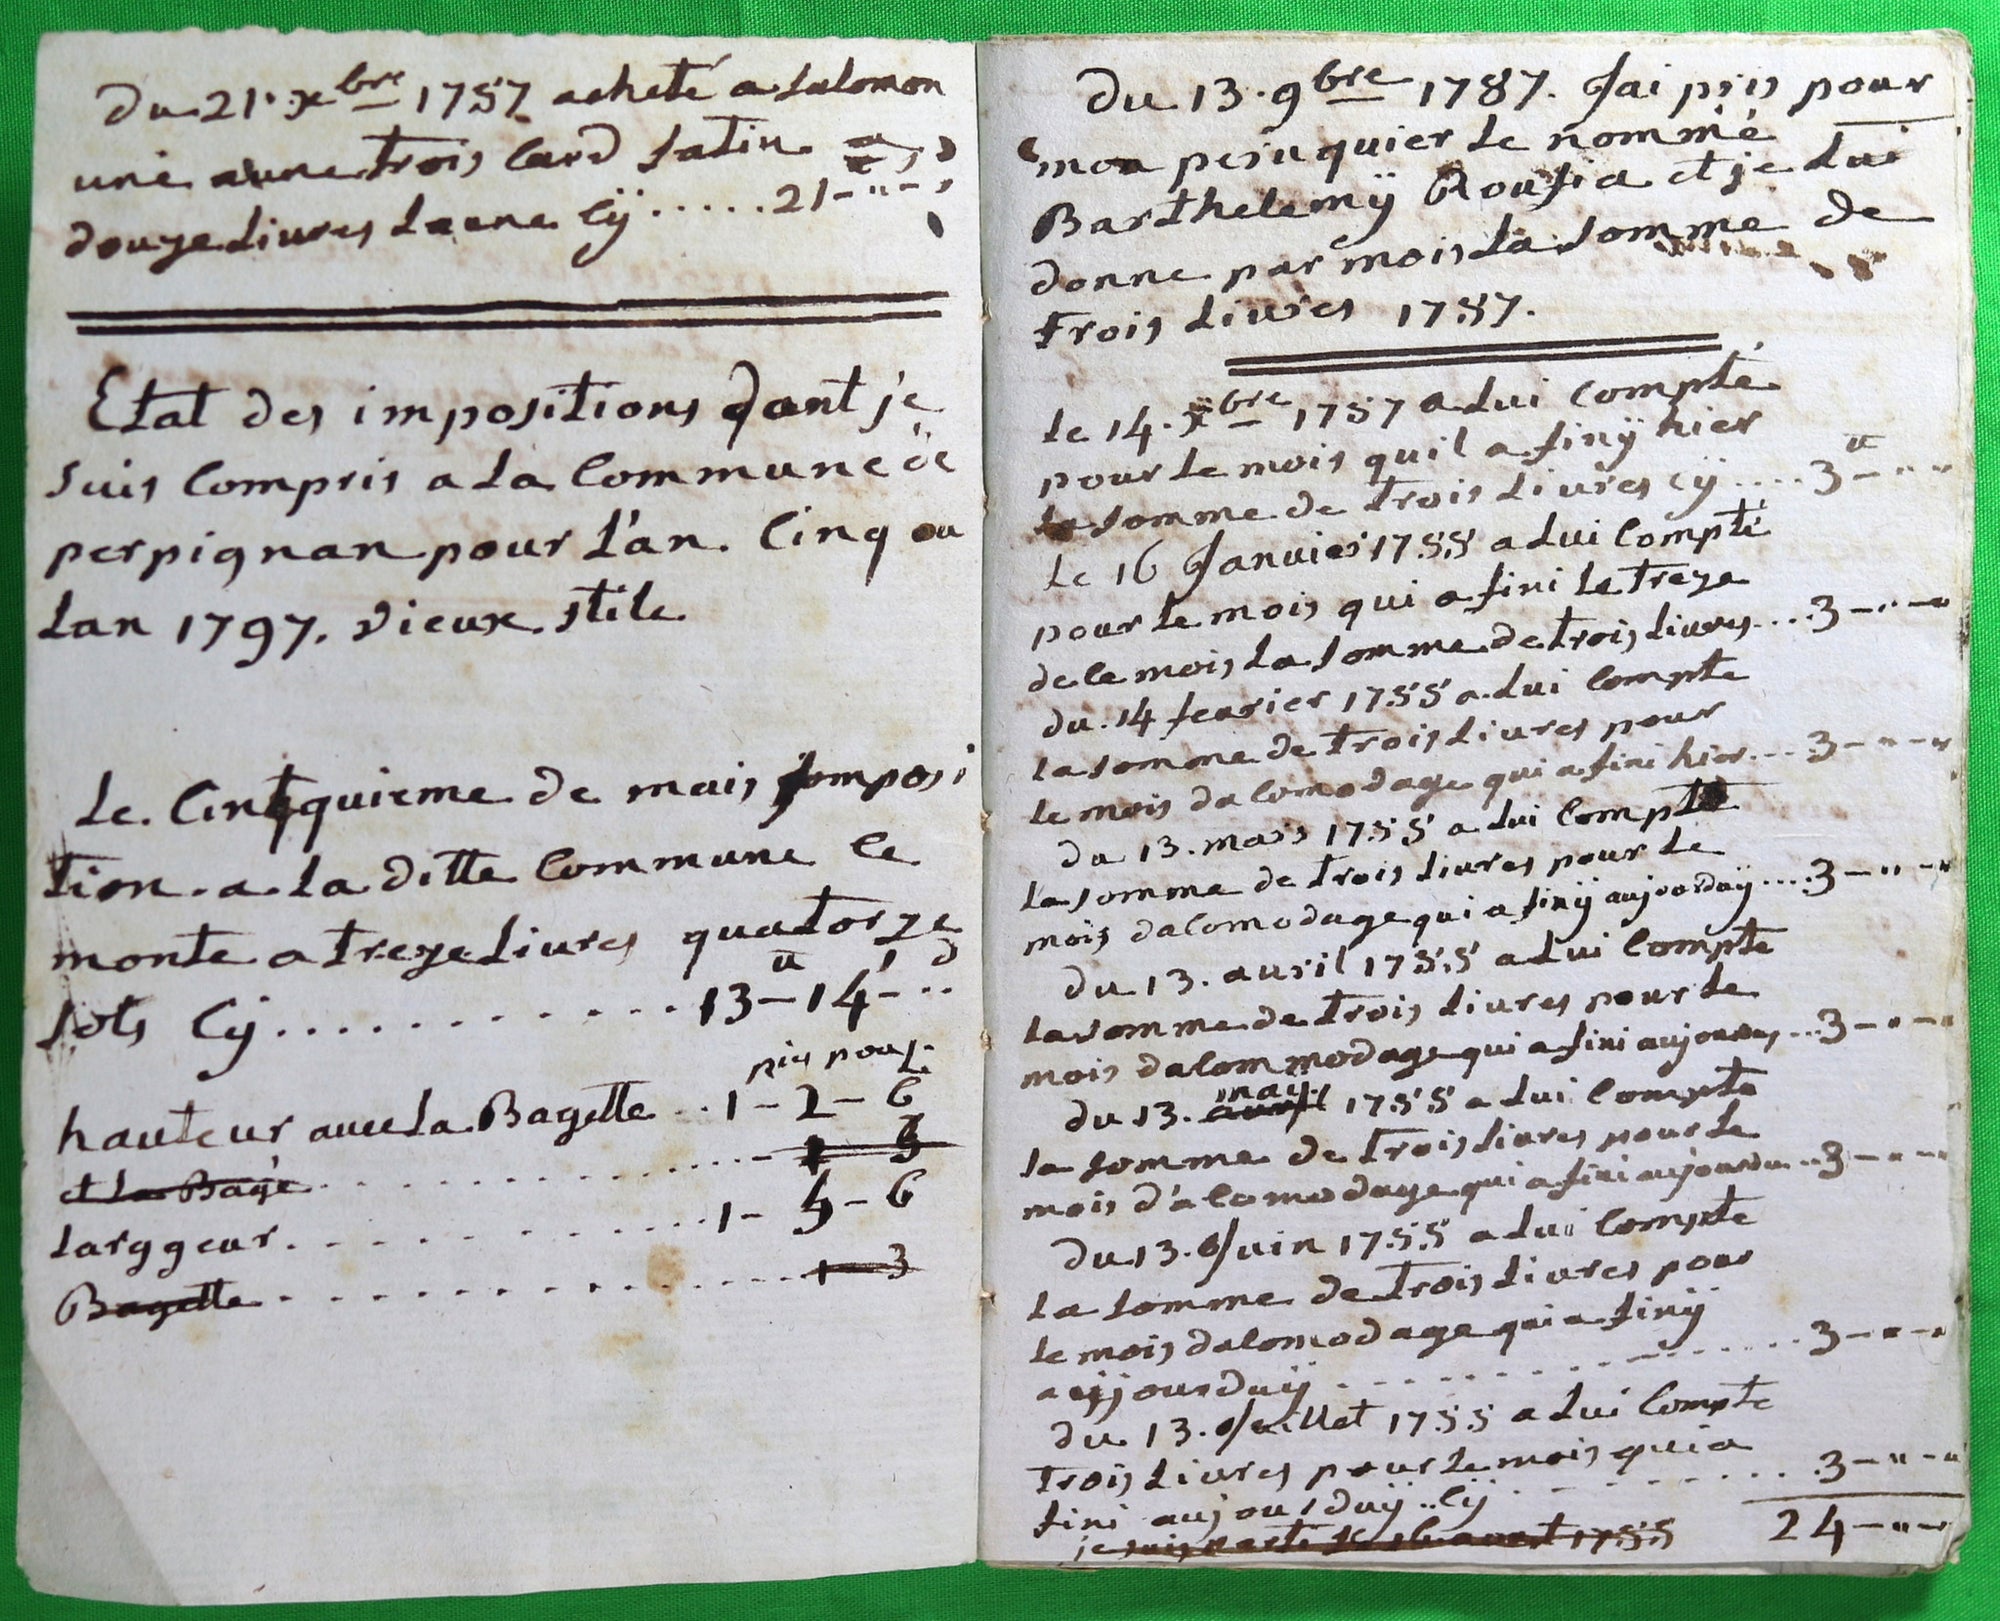 du 21. xbre 1787 acheté a Salomon
une aune trois card Satin
douze Livres Laune Cÿ ..... 21 - " - "
Etat des impositions dont je
Suis Compris a La Commune de
perpignan pour L'an. Cinq ou
Lan 1797. vieux stile
Le. Cinqquieme de mais Jmposi
tion. a. La ditte Commune Ce
monte a treze Livres quatorze
sols Cÿ ........... 13 - 14 - ..
pies pous.
hauteur avec La Bagette .. 1 - 2 - 6
et La Bage .......... 1 3
Larggeur .......... 1 - 5 - 6
Bagette .......... 1 3
du 13. 9bre 1787. Jai pris pour
mon peruquier Le nommé
Barthelemÿ Rousia et je Lui
donne par mois La Somme de
trois Livres 1787.
Le 14. xbre 1787 a Lui Compté
pour Le mois quil a finÿ hier
La Somme de trois Livres cÿ .... 3 - " - "
Le 16 Janvier 1788 a Lui Compté
pour Le mois qui a fini Le treze
de Ce mois La Somme de trois Livres .... 3 - " - "
du. 14 fevrier 1788 a Lui Compte
La Somme de trois Livres pour
Le mois dacomodage qui a fini hier ... 3 - " - "
du 13. mars 1788 a Lui Compte
La Somme de trois Livres pour Le
mois dacomodage qui a finÿ aujourduÿ .... 3 - " - "
du 13. avril 1788 a Lui Compte
La Somme de trois Livres pour Le
mois dacommodage qui a fini ... 3 - " - "
du 13. avril may 1788 a Lui Compte
La Somme de trois Livres pour Le
mois d'acomodage qui a fini aujourdu .. 3 - " - "
du 13. Juin 1788 a Lui Compte
La Somme de trois Livres pour
Le mois dacomodage qui a finÿ
aujjourduÿ .......... 3 - " - "
du 13. Juillet 1788 a Lui Compte
trois Livres pour Le mois qui a
fini aujourduÿ .. Cÿ .......... 3 - " - "
je suis parti Le 1788
24 - " - "